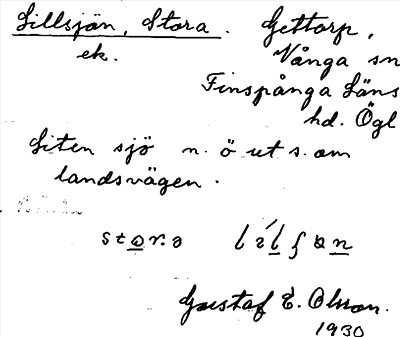 Lillsjön, Stora. Gettorp,
ek. Vånga sn
Finspånga Läns
hd. Ögl
Liten sjö n. ö ut s. om
landsvägen.
Gustaf E. Olsson.
1930